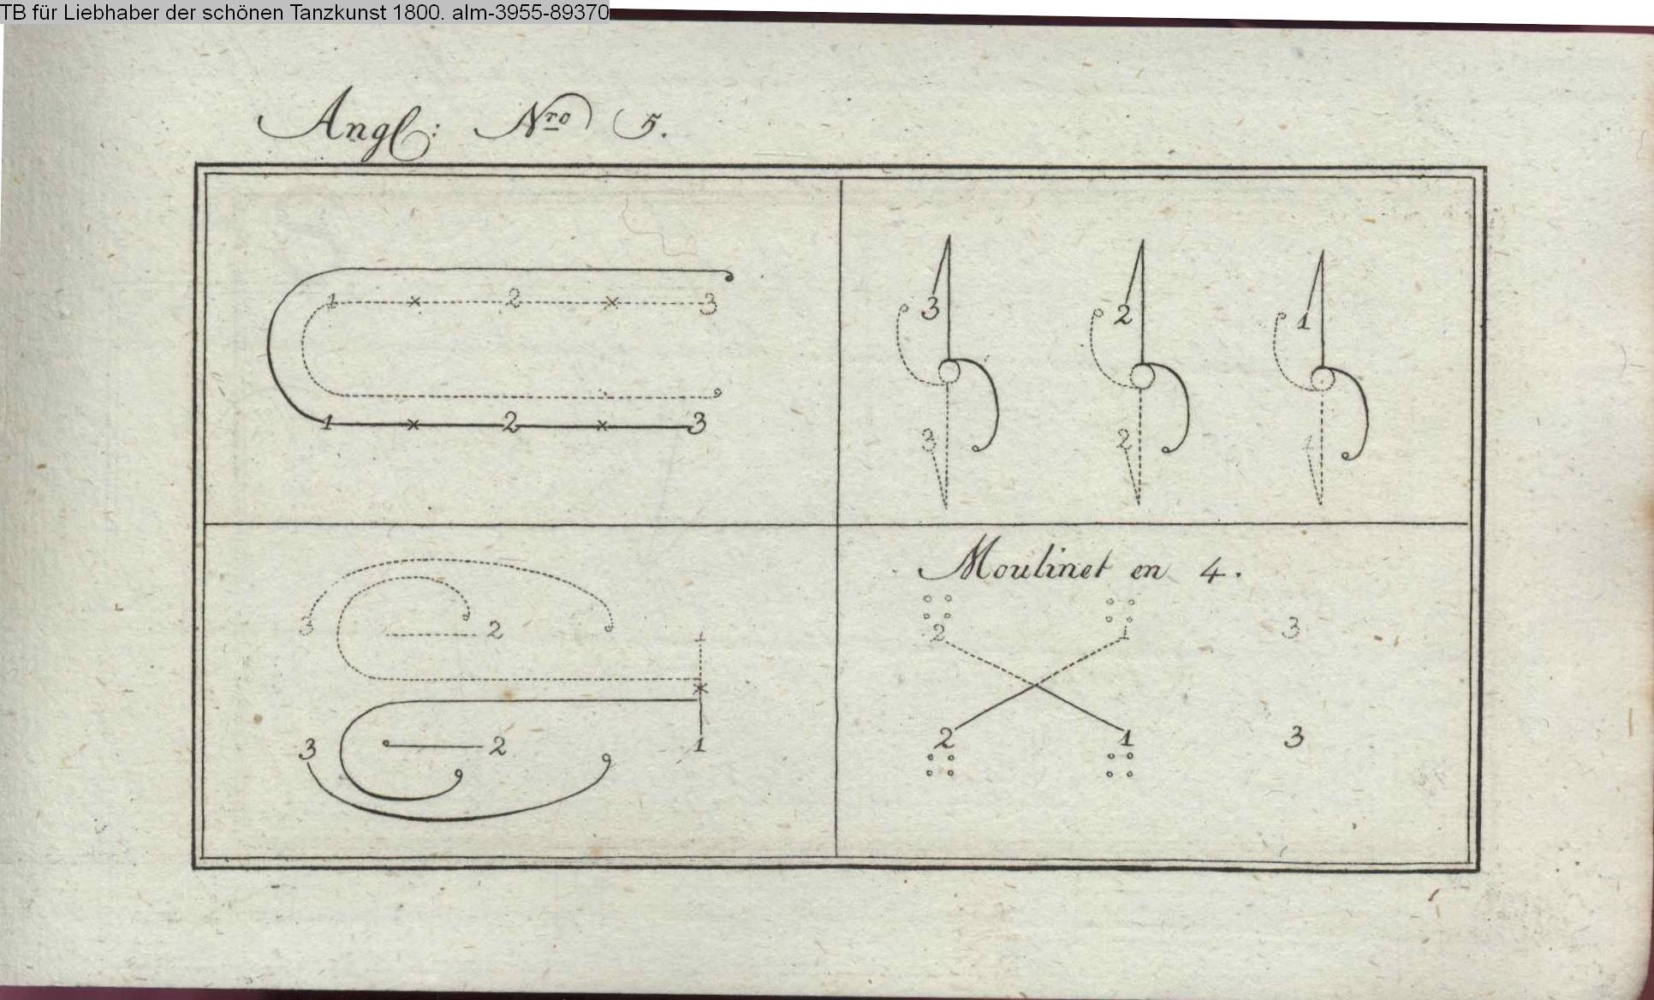 TB für Liebhaber der schönen Tanzkunst 1800. alm-3955-89370
Angl: Nro 5.
1 × 2 × 3
1 × 2 × 3
3 2 1
3 2 1
3 2 1
×
3 2 1
Moulinet en 4.
2 1 3
2 1 3